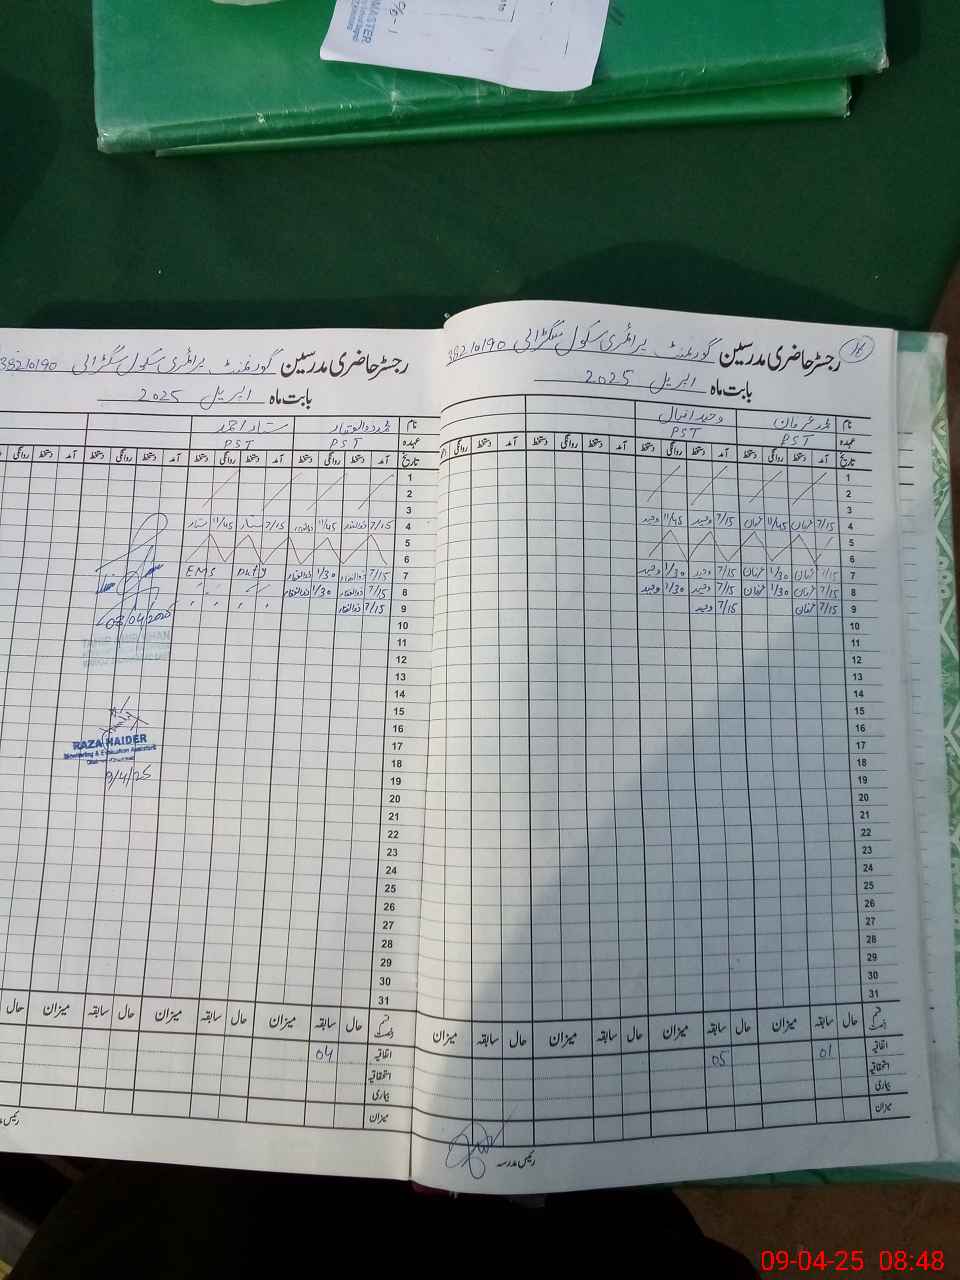 MASTER
رجسٹر حاضری مدرسین گورنمنٹ پرائمری سکول 38210190
16
بابت ماہ اپریل 2025
نام محمد عرفان وحید اقبال
عہدہ PST PST
تاریخ آمد دستخط روانگی دستخط آمد دستخط روانگی دستخط
1
2
3
4 7/15 عرفان 11/45 عرفان 7/15 وحید 11/45 وحید
5
6
7 7/15 عرفان 1/30 عرفان 7/15 وحید 1/30 وحید
8 7/15 عرفان 1/30 عرفان 7/15 وحید 1/30 وحید
9 7/15 عرفان 7/15 وحید
10
11
12
13
14
15
16
17
18
19
20
21
22
23
24
25
26
27
28
29
30
31
حال سابقہ میزان حال سابقہ میزان حال سابقہ میزان حال سابقہ میزان
اتفاقیہ 01 05
استحقاقیہ
بیماری
میزان
رئیس مدرسہ
رجسٹر حاضری مدرسین گورنمنٹ پرائمری سکول 38210190
بابت ماہ اپریل 2025
نام محمد ذوالفقار ستار احمد
عہدہ PST PST
تاریخ آمد دستخط روانگی دستخط آمد دستخط روانگی دستخط آمد دستخط روانگی دستخط
1
2
3
4 7/15 ذوالفقار 11/45 ذوالفقار 7/15 ستار 11/45 ستار
5
6
7 7/15 ذوالفقار 1/30 ذوالفقار EMS Duty
8 7/15 ذوالفقار 1/30 ذوالفقار
9 7/15 ذوالفقار
08/04/2025
10
11
12
13
14
15
16
RAZA HAIDER
Monitoring & Evaluation Assistant
17
18
9/4/25
19
20
21
22
23
24
25
26
27
28
29
30
31
حال سابقہ میزان حال سابقہ میزان حال سابقہ میزان حال
اتفاقیہ 04
استحقاقیہ
بیماری
میزان
رئیس مدرسہ
09-04-25 08:48